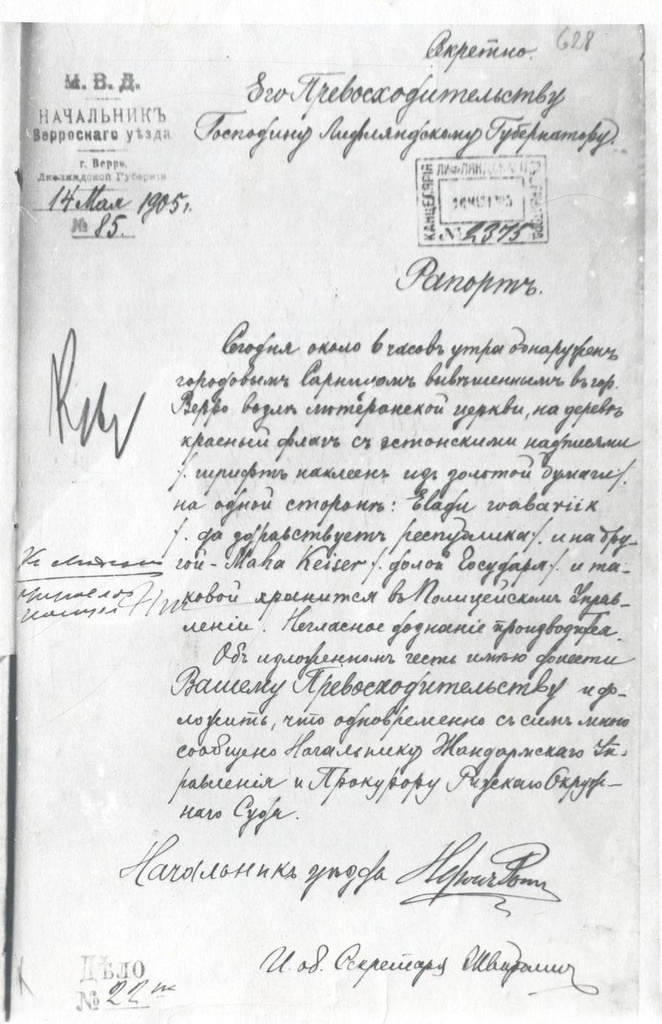 Секретно. 628
М. В. Д.
НАЧАЛЬНИКЪ
Верроскаго уѣзда
г. Верро,
Лифляндской Губерніи
14 Мая 1905 г.
№ 85.
Его Превосходительству
Господину Лифляндскому Губернатору.
КАНЦЕЛЯРІЯ ЛИФЛЯНДСКАГО
№ 2375
Рапортъ.
Сегодня около 6 часовъ утра обнаруженъ
городовымъ вывѣшеннымъ въ гор.
Верро возлѣ лютеранской церкви, на деревѣ
красный флагъ съ эстонскими надписями
/. шрифтъ наклеенъ изъ золотой бумаги /.
на одной сторонѣ: Elagu wabariik
/. да здравствуетъ республика /. и на дру-
гой - Maha Keiser /. долой Государя /. и та-
ковой хранится въ Полицейскомъ Управ-
леніи. Негласное дознаніе производится.
Объ изложенномъ честь имѣю донести
Вашему Превосходительству и до-
ложить, что одновременно съ симъ мною
сообщено Начальнику Жандармскаго Уп-
равленія и Прокурору Рижскаго Окруж-
наго Суда.
Начальникъ уѣзда
И. об. Секретаря
ДѢЛО
№ 22